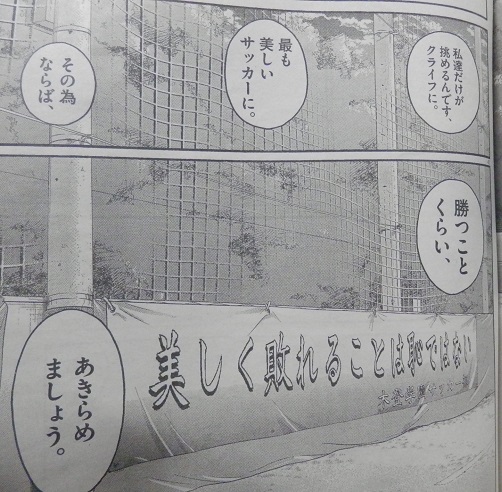 私達だけが
挑めるんです、
クライフに。
最も
美しい
サッカーに。
その為
ならば、
勝つこと
くらい、
美しく敗れることは恥ではない
あきらめ
ましょう。